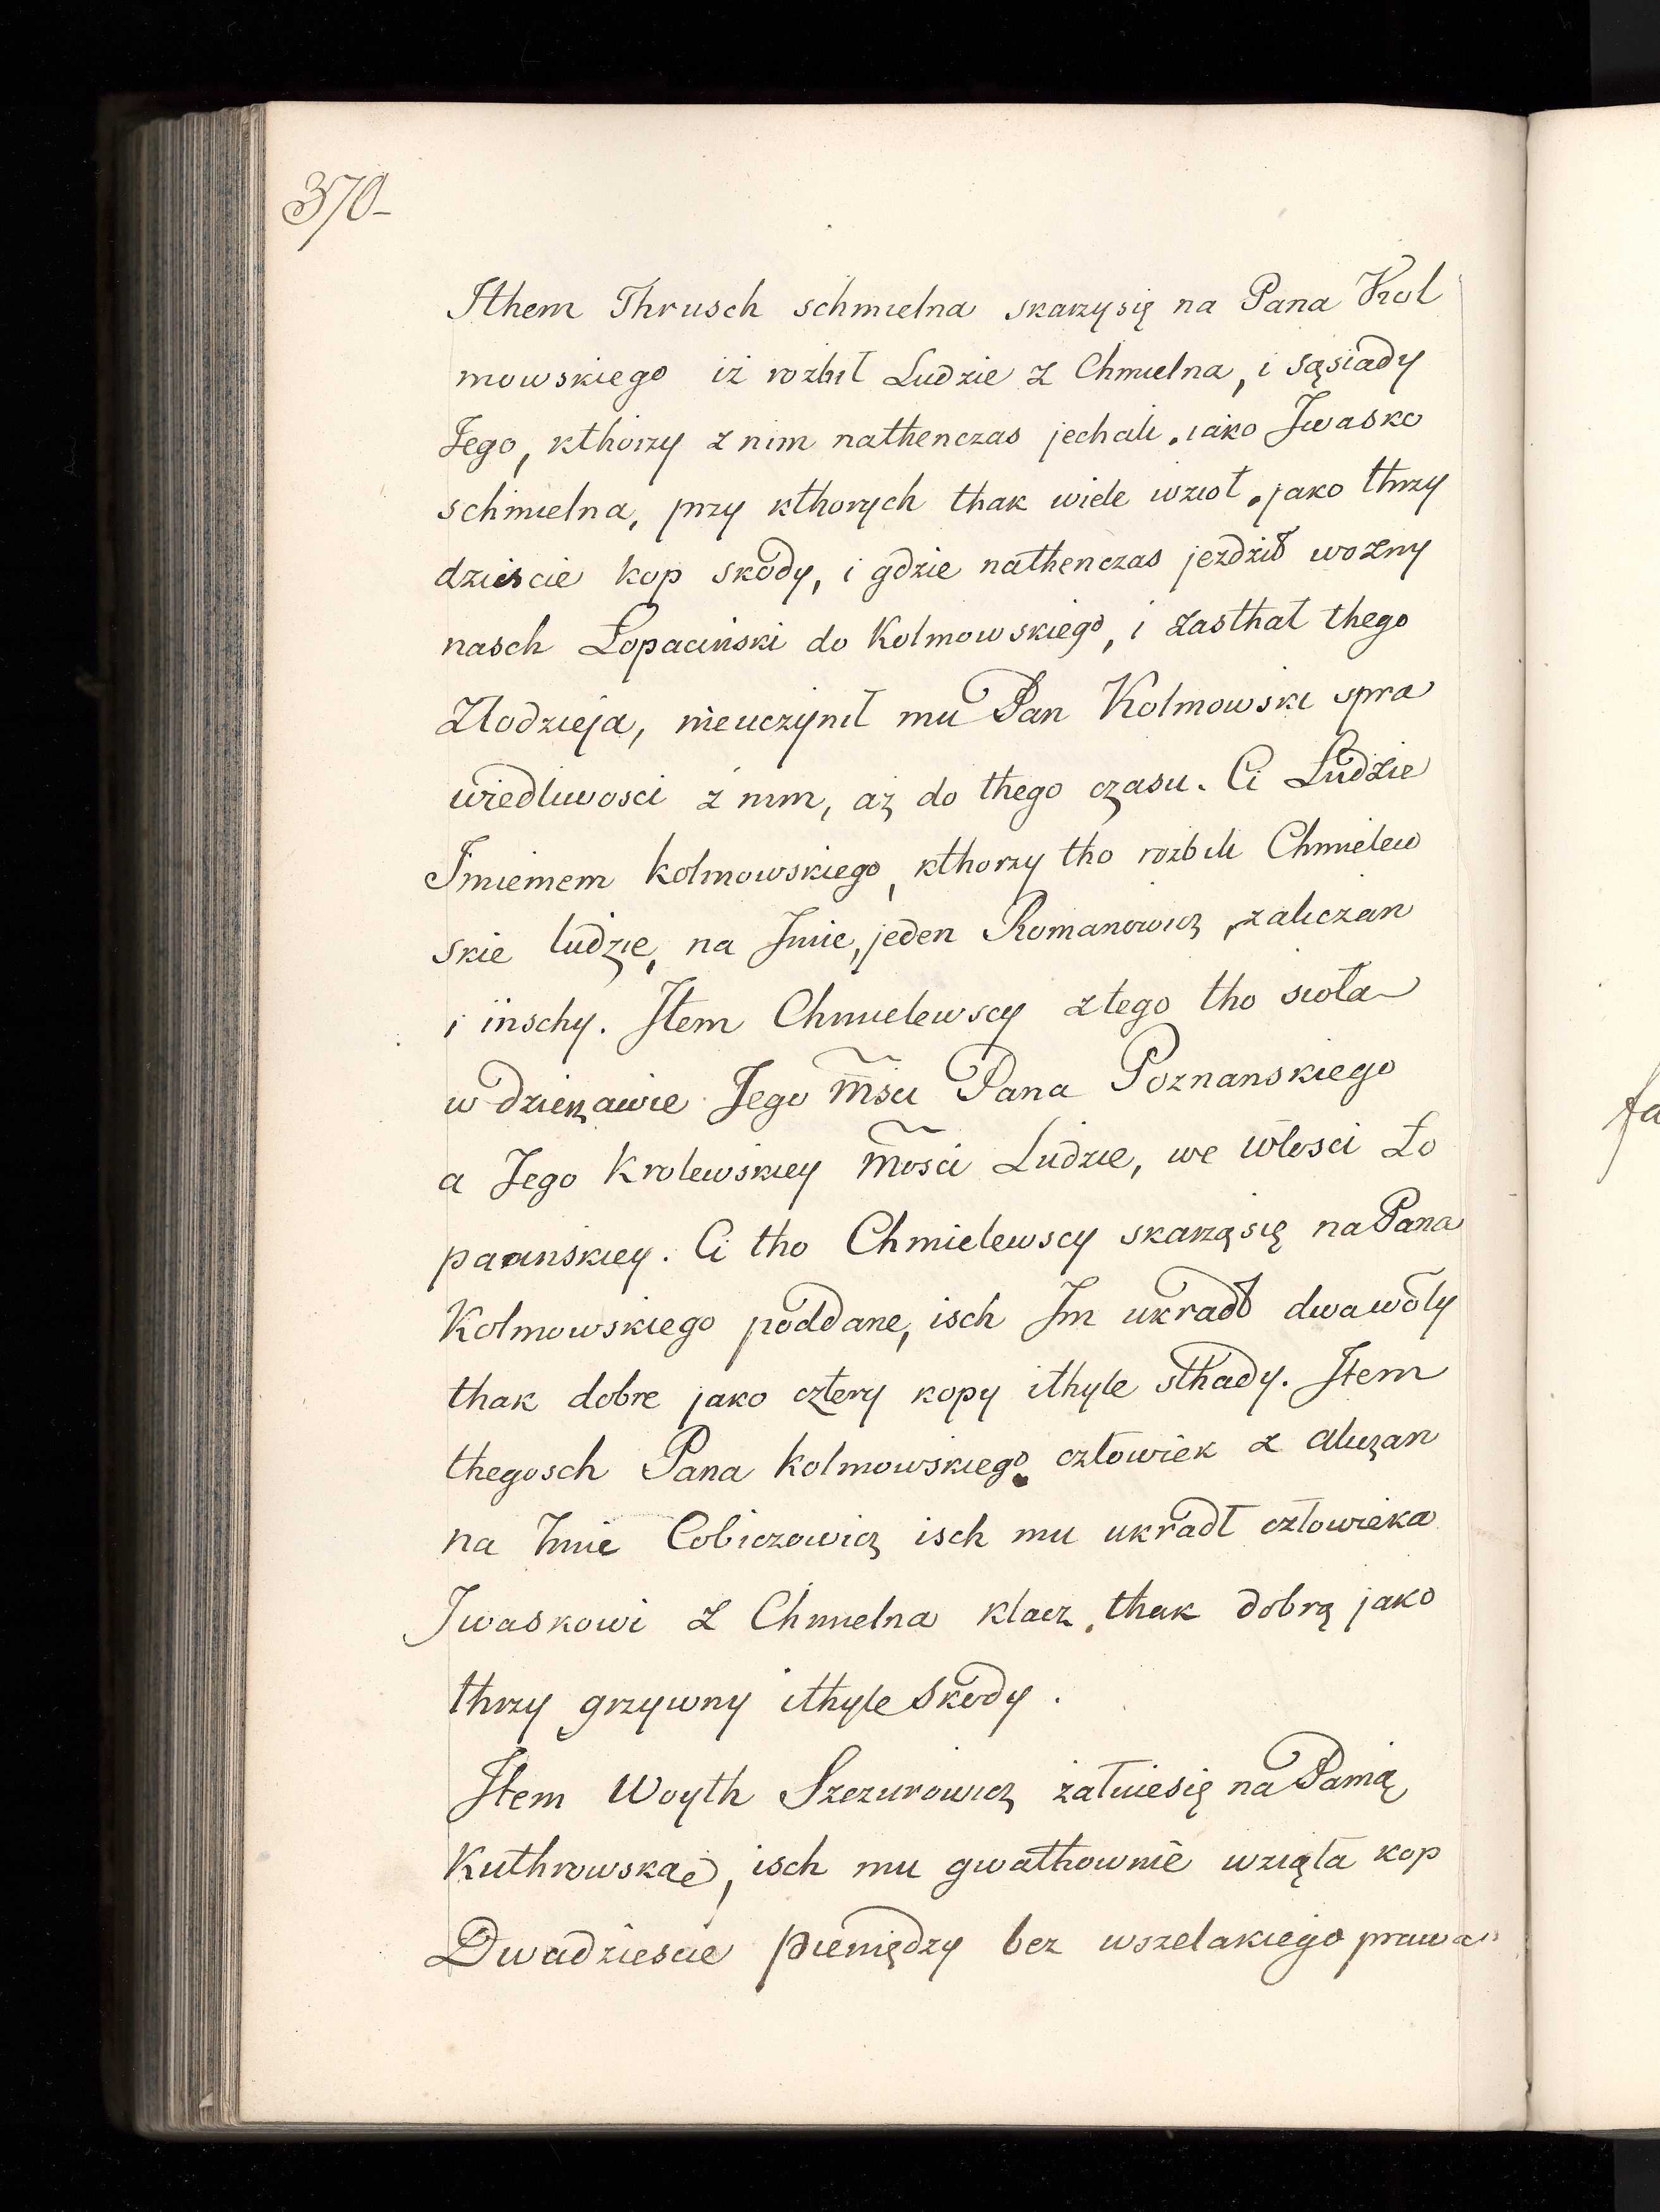 370-
Ithem Thrusch schmielna skarzysię na Pana Kol
mowskiego iż rozbił Ludzie z Chmielna, i sąsiady
Jego, kthorzy z nim nathenczas jechali, iako Iwasko
schmielna, przy kthorych thak wiele wzioł, jako thrzy
dzieście kop skody, i gdzie nathenczas jezdził wozny
nasch Łopaciński do Kolmowskiego, i zasthał thego
Złodzieja, nieuczynił mu Pan Kolmowski spra
wiedliwosci z nim, aż do thego czasu. Ci Ludzie
Imieniem Kolmowskiego, kthorzy tho rozbili Chmielew
skie ludzie, na Imie, jeden Romanowicz, zaliczan
i iinschy. Item Chmielewscy z tego tho sioła
w dzierzawie Jego Msci Pana Poznanskiego
a Jego Krolewskiey Mosci Ludzie, we włosci Ło
pacinskiey. Ci tho Chmielewscy skarząsię na Pana
Kolmowskiego poddane, isch Im ukradł dwa woły
thak dobre jako cztery kopy ithyle sthady. Item
thegosch Pana Kolmowskiego człowiek z aliczan
na Imie Cobiczowicz isch mu ukradł człowieka
Iwaskowi z Chmielna klacz, thak dobrą jako
thrzy grzywny ithyle skody.
Item Woyth Szczurowicz żałuiesię na Panią
Kuthrowskae, isch mu gwałthownie wzięła kop
Dwadziescie pieniędzy bez wszelakiego prawa
fa